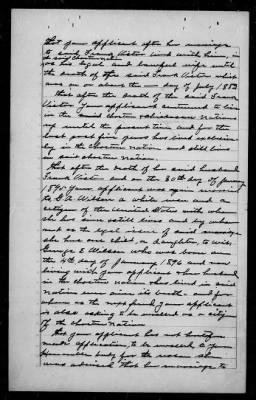 that your applicant after her marriage
to said Frank Victor lived with him in
the said Choctaw Nation
as his legal and lawful wife until
the death of the said Frank Victor which
was on or about the day of July 1883
That after the death of the said Frank
Victor your applicant continued to live
in the said Choctaw Chickasaw nations
up until the present time and for the
last past five years has lived continuously
in the Choctaw nation and still lives
in said Choctaw nation.
That after the death of her said husband
Frank Victor and on the 30th day of
1895 your applicant was again married
to G.A. Wilson a white man and a
citizen of the United States with whom
she has ever still lives and by whom
and as the legal issue of said marriage
she has one child, a daughter, to wit,
George E Wilson who was born on
the 4th day of January 1896 and now
living with your applicant & her husband
in the Choctaw nation has lived in said
nation ever since its birth and for
whom as the next friend your applicant
is also asking to be enrolled as a citizen
of the Choctaw Nation
That your applicant has not heretofore
made application to be enrolled by your
Honorable body for the reason she
was advised that her marriage to